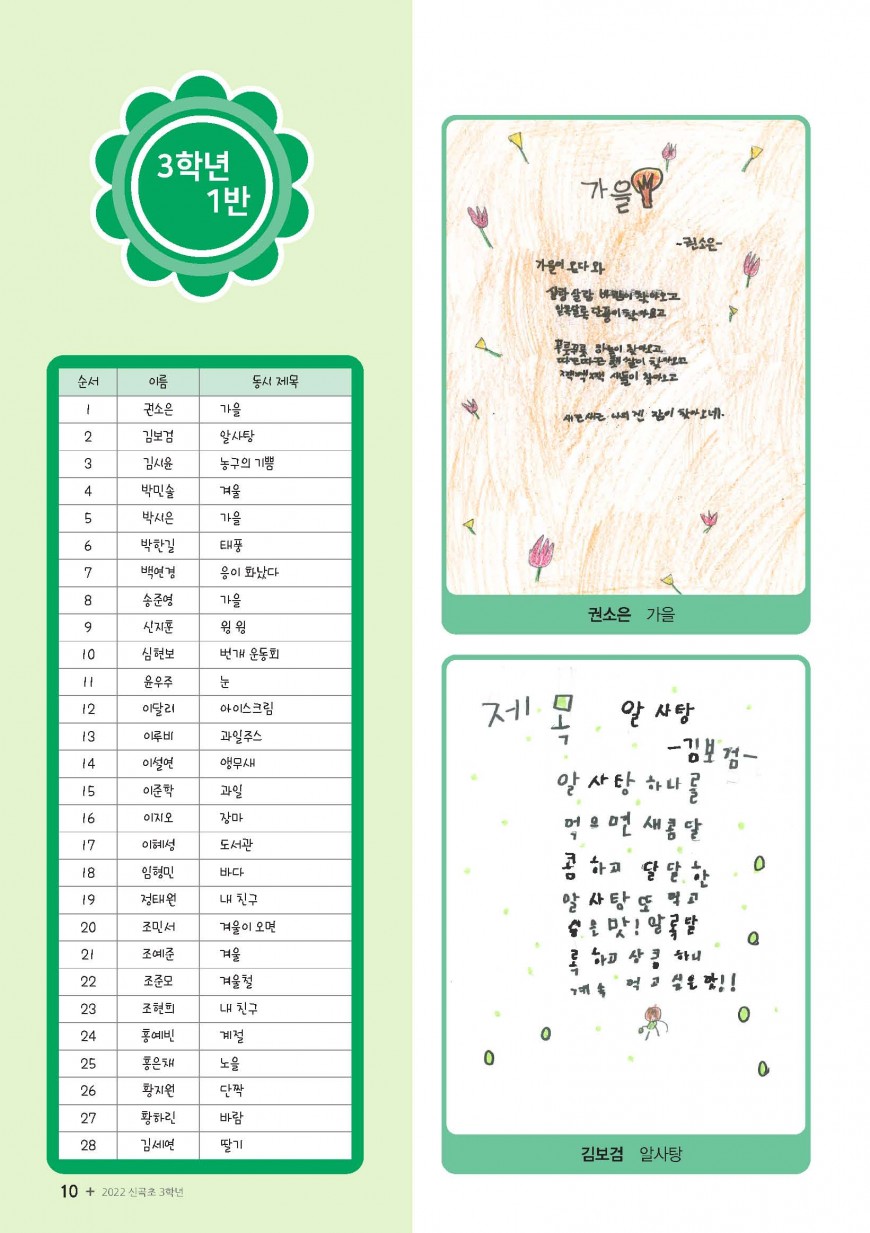 3학년
1반
순서 이름 동시 제목
1 권소은 가을
2 김보검 알사탕
3 김시윤 농구의 기쁨
4 박민솔 겨울
5 박시은 가을
6 박한길 태풍
7 백연경 응이 화났다
8 송준영 가을
9 신지훈 윙 윙
10 심현보 번개 운동회
11 윤우주 눈
12 이달리 아이스크림
13 이루비 과일주스
14 이설연 앵무새
15 이준학 과일
16 이지오 장마
17 이혜성 도서관
18 임형민 바다
19 정태원 내 친구
20 조민서 겨울이 오면
21 조예준 겨울
22 조준모 겨울철
23 조현희 내 친구
24 홍예빈 계절
25 홍은채 노을
26 황지원 단짝
27 황하린 바람
28 김세연 딸기
10 + 2022 신곡초 3학년
가을
-권소은-
가을이 온다와
살랑살랑 바람이 찾아오고
알록달록 단풍이 찾아오고
꾸룻꾸룻 하늘이 찾아오고
따끈따끈 햇살이 찾아오고
짹짹짹 새들이 찾아오고
새근새근 나에겐 잠이 찾아오네.
권소은 가을
제목 알사탕
-김보검-
알사탕 하나를
먹으면 새콤달
콤하고 달달한
알사탕 또 먹고
싶은맛! 알록달
록하고 상큼하니
계속 먹고 싶은 맛!!
김보검 알사탕